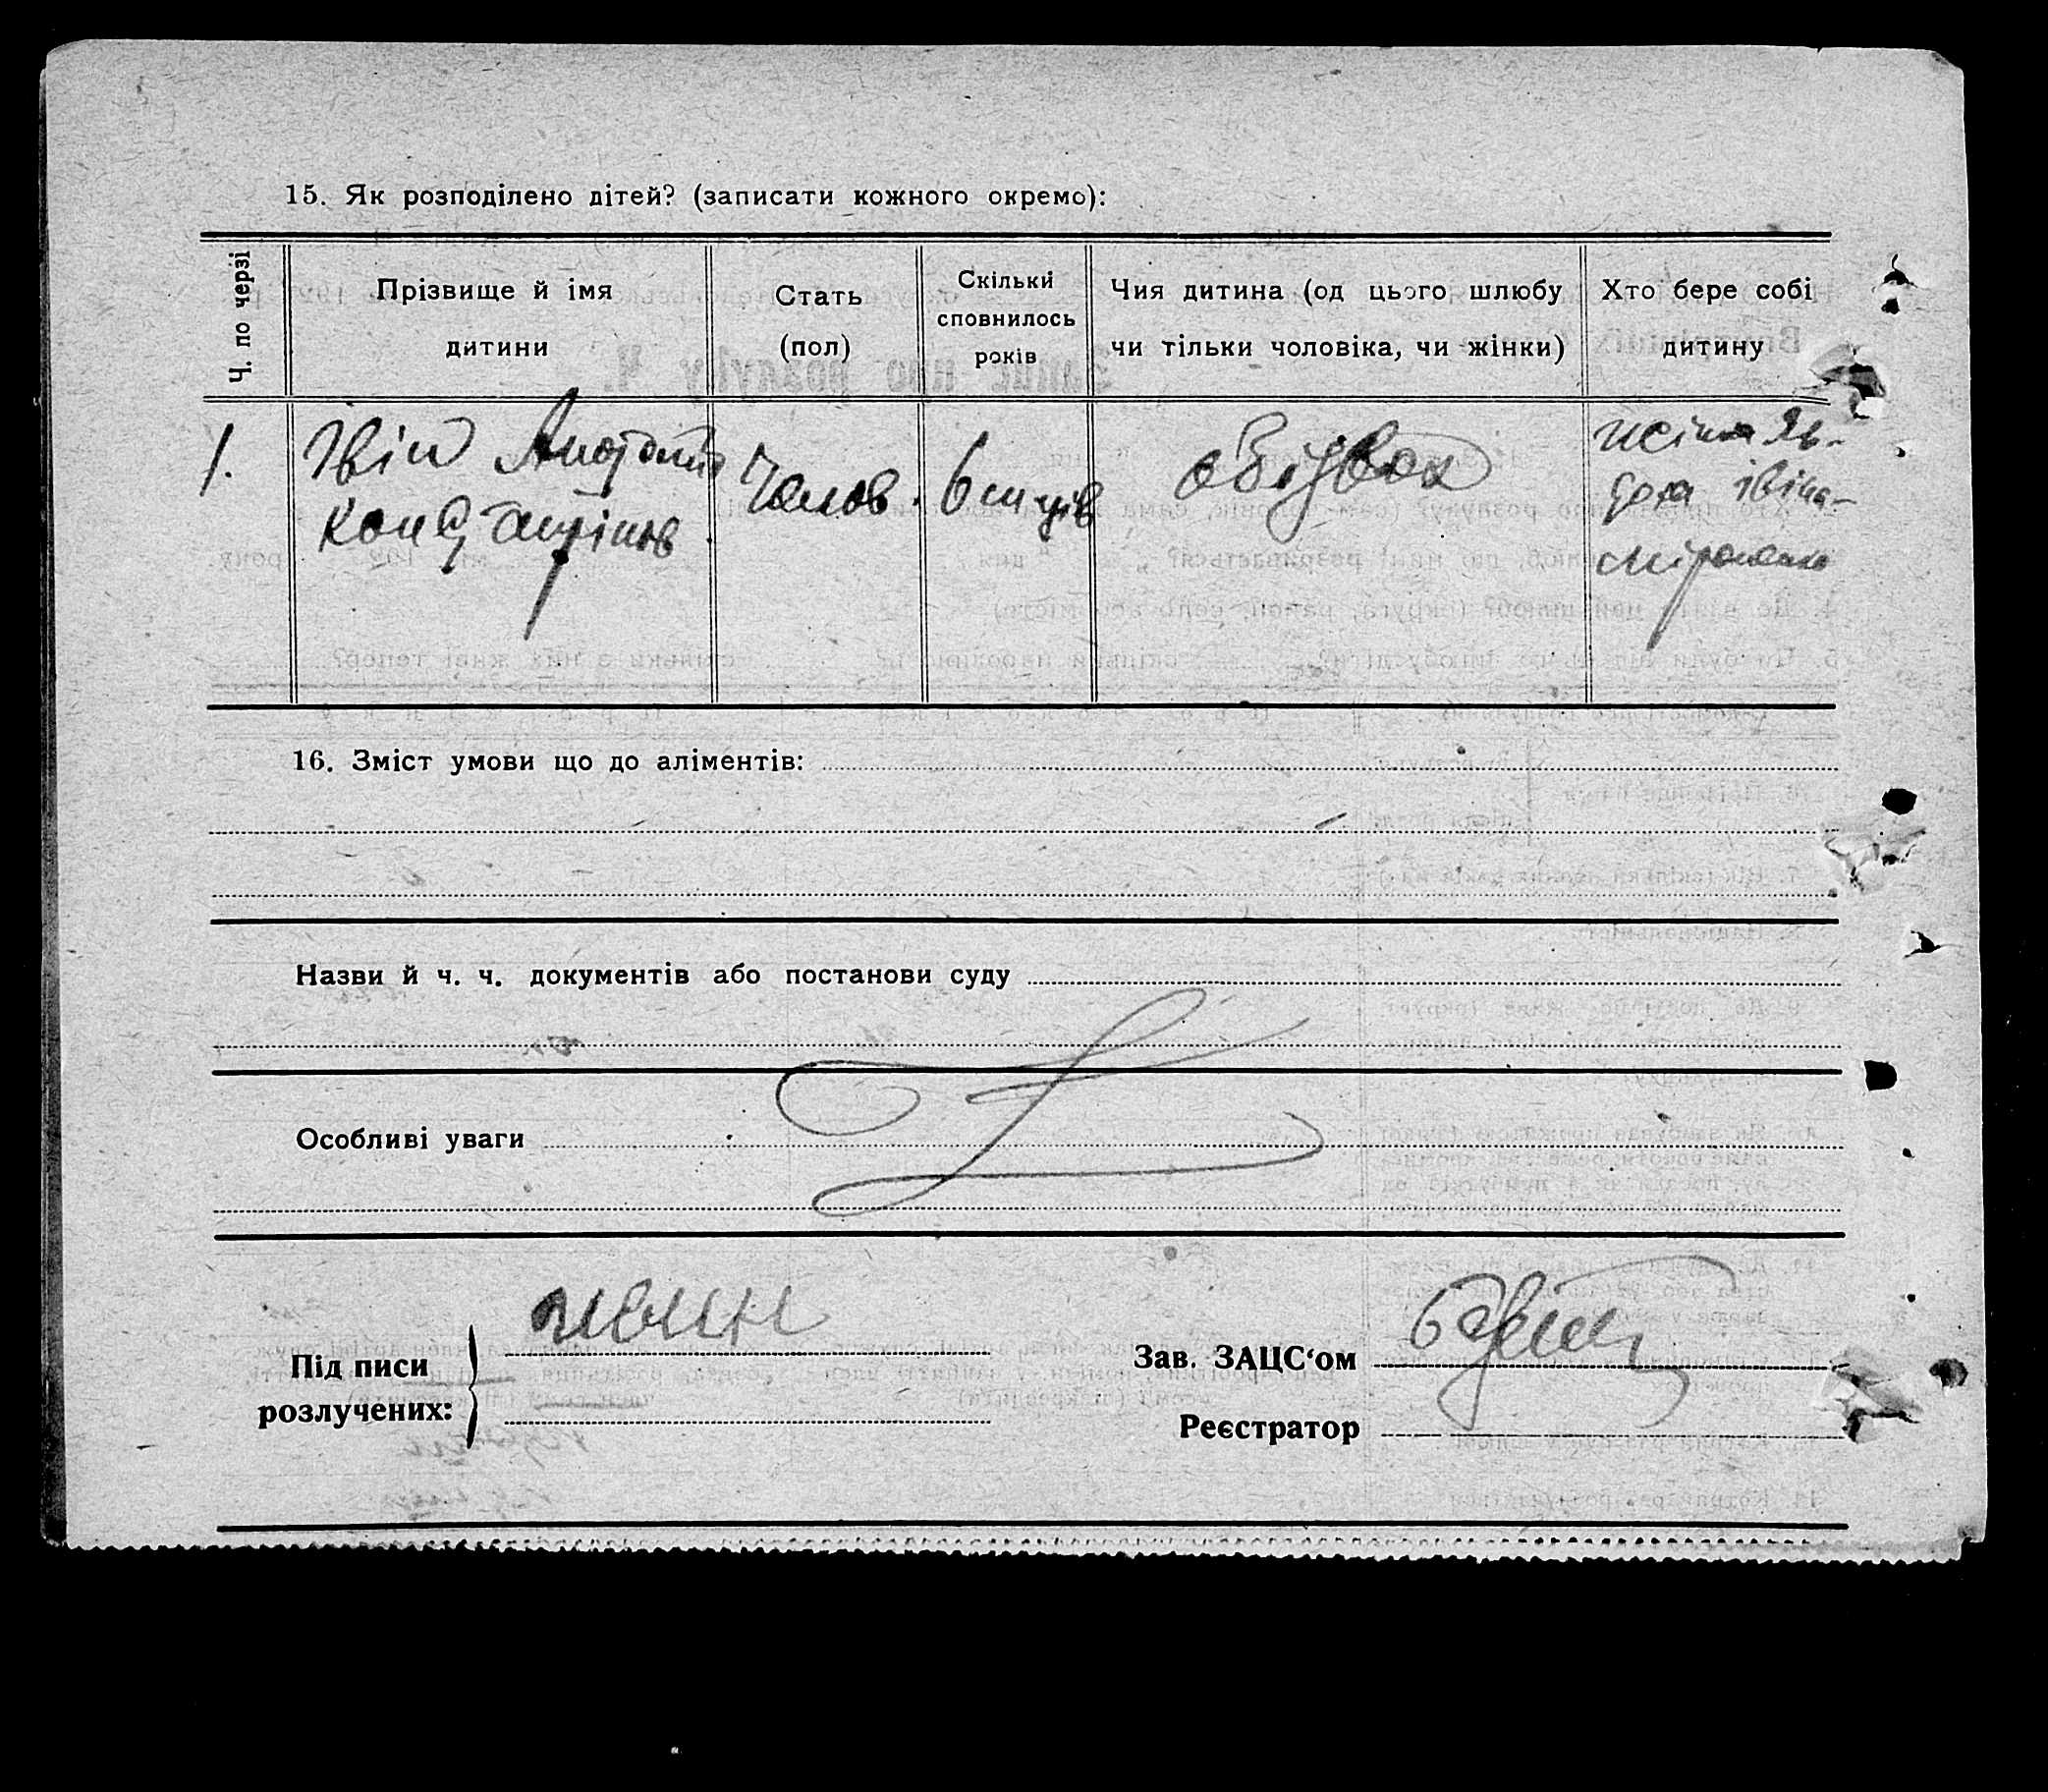 15. Як розподілено дітей? (записати кожного окремо):
Ч. по черзі
Прізвище й імя дитини
Стать (пол)
Скільки сповнилось років
Чия дитина (од цього шлюбу чи тільки чоловіка, чи жінки)
Хто бере собі дитину
1.
Івін Анатолій
Констянтінов
Чолов.
6 м-ців
обідвох
жінка Яв-
доха Івіна-
Міроненко
16. Зміст умови що до аліментів:
Назви й ч. ч. документів або постанови суду
Особливі уваги
Під писи
розлучених:
Ивин
Зав. ЗАЦС‘ом
Реєстратор